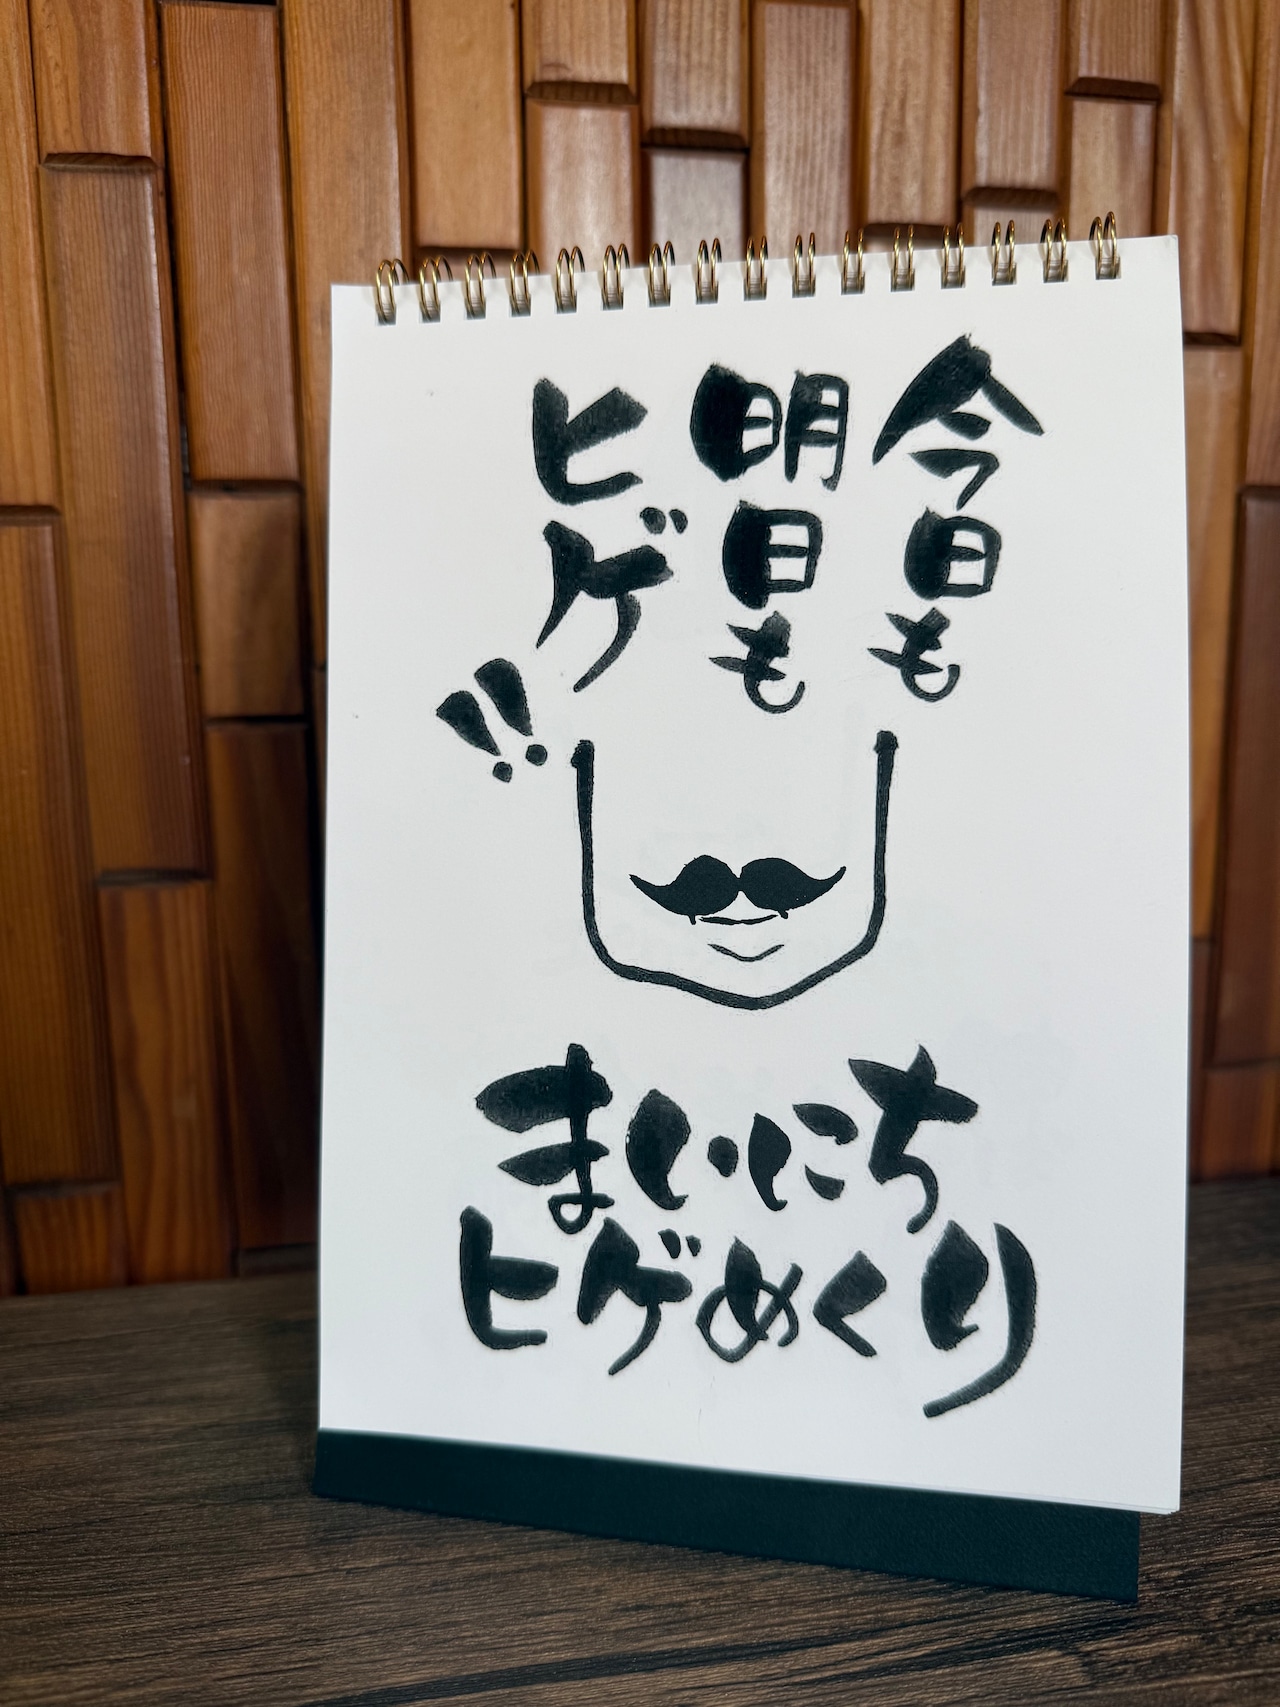 今日も
明日も
ヒゲ!!
まいにち
ヒゲめくり